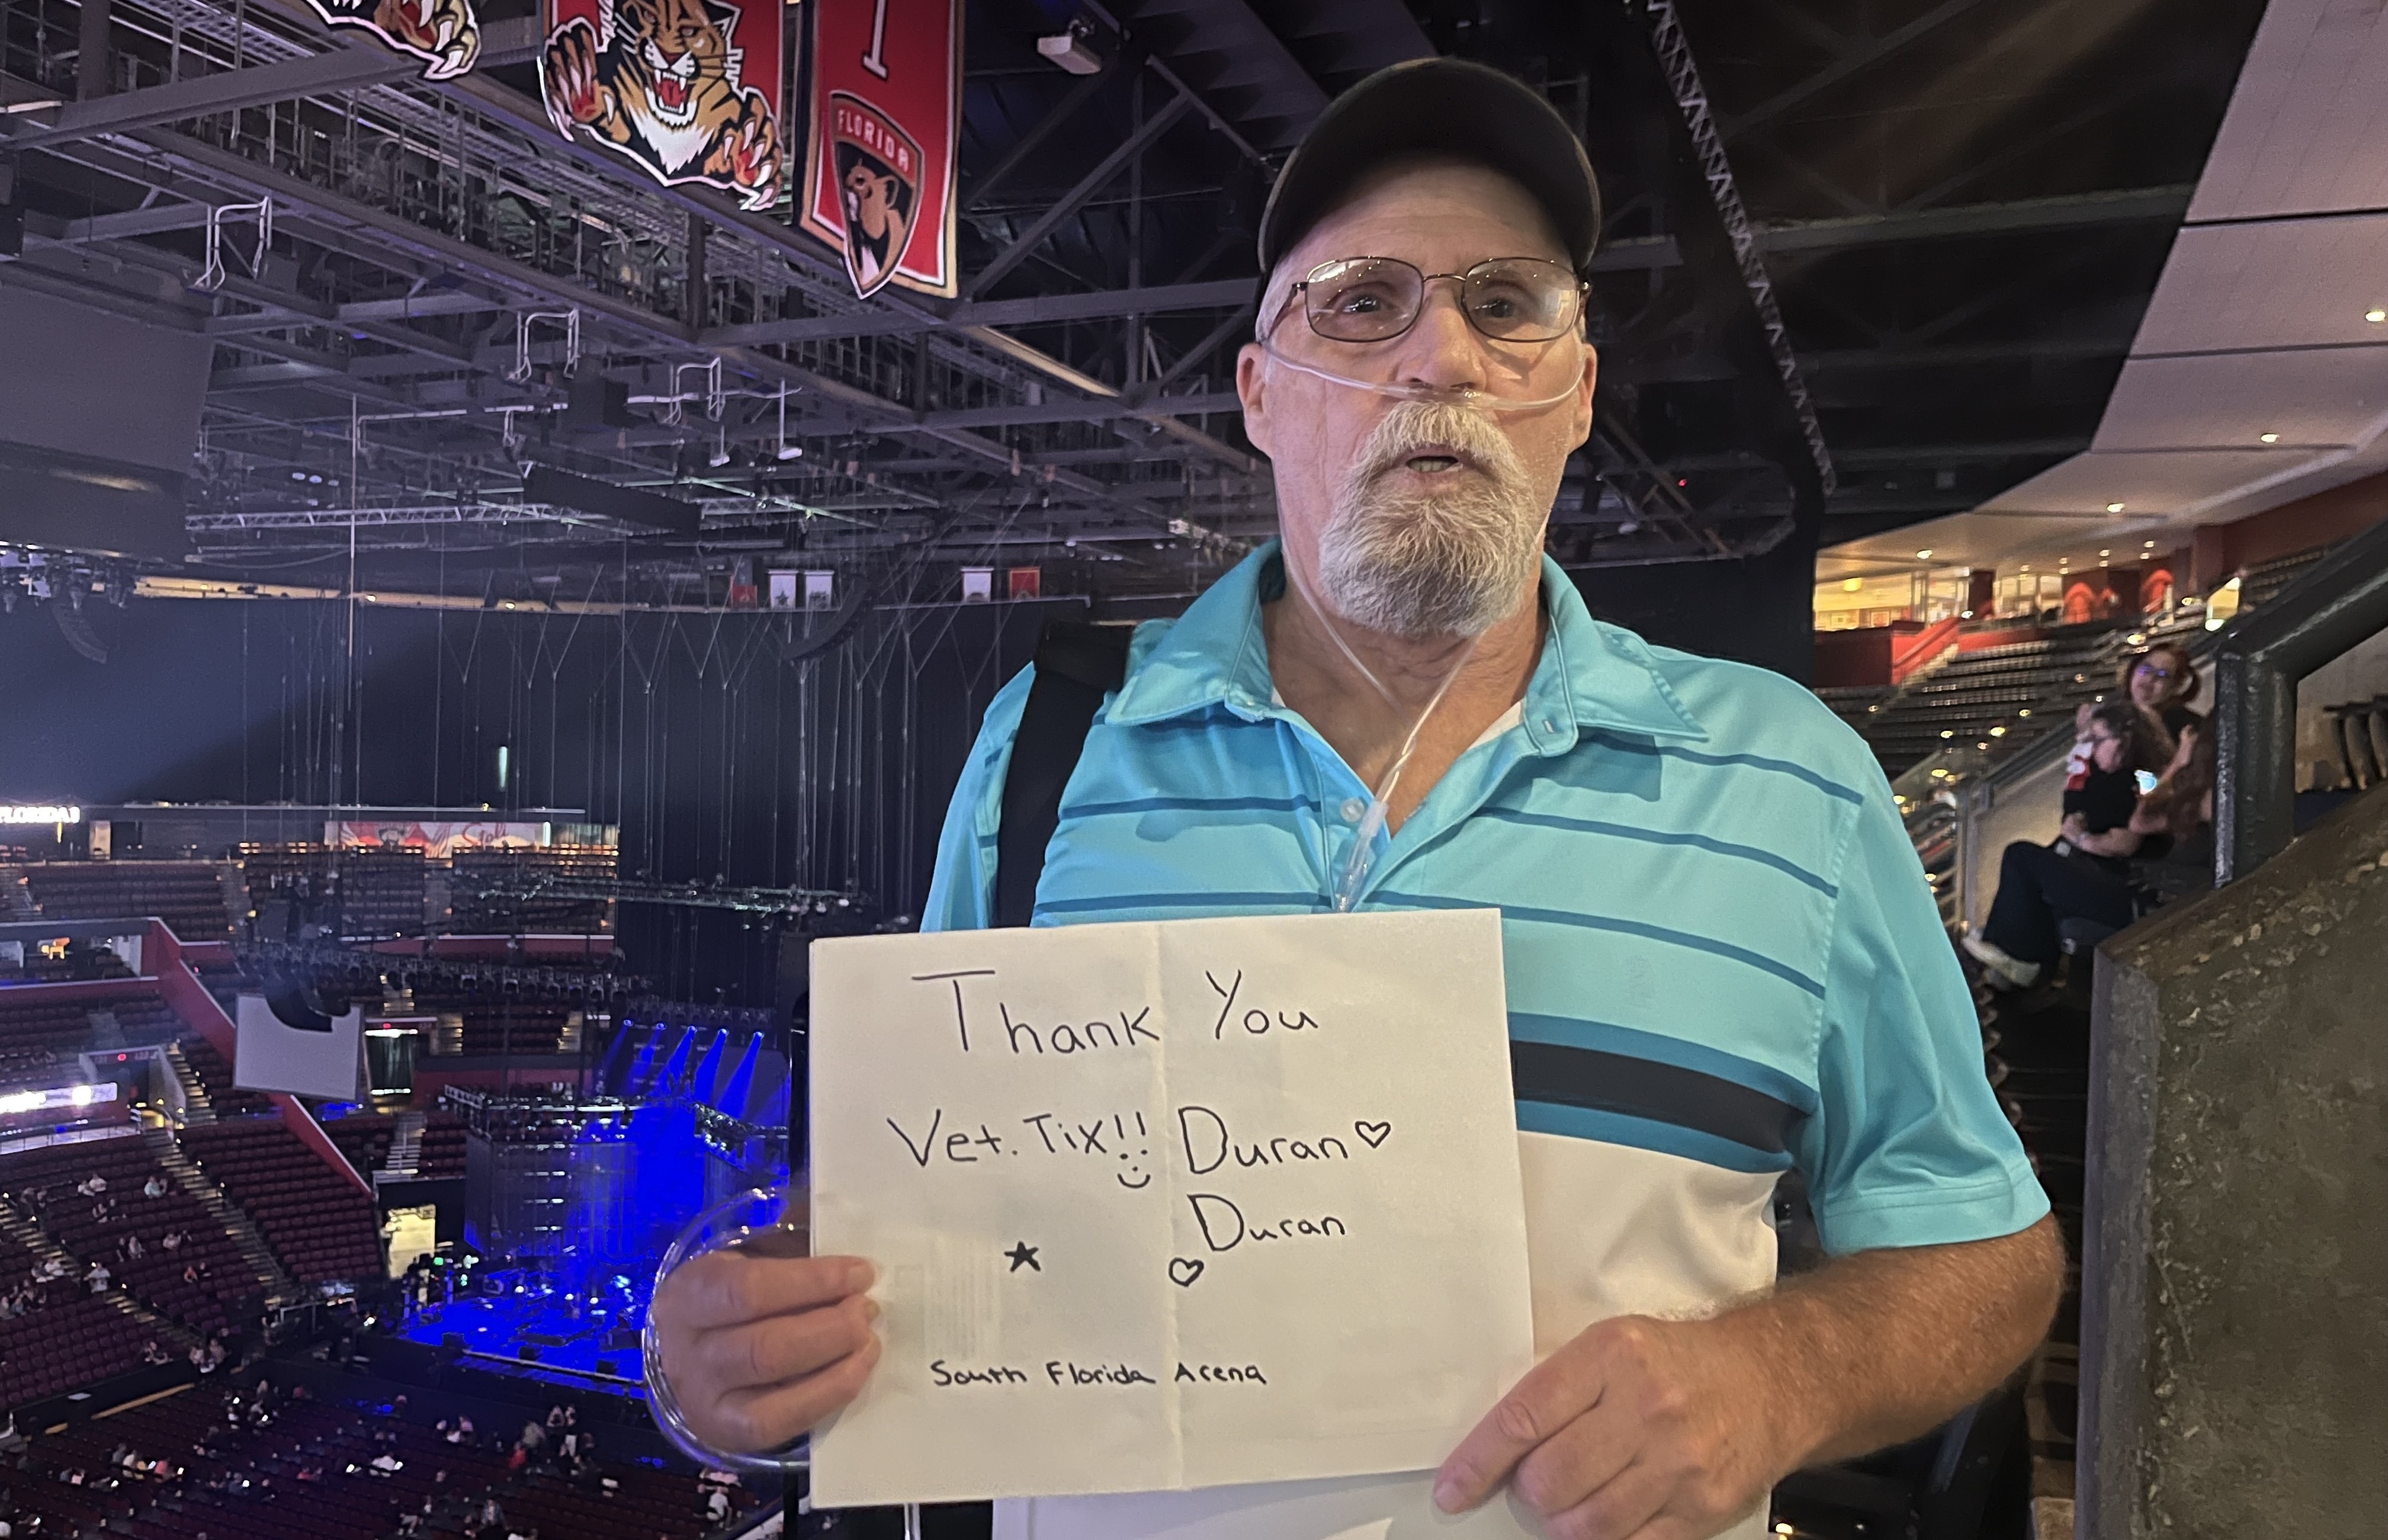 I
FLORIDA
FLORIDA
Stoli
Thank You
Vet. Tix!! Duran
Duran
South Florida Arena